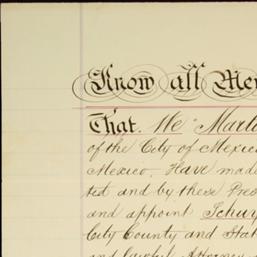 Know all Me
That. We Marti
of the City of Mexic
Mexico. Have made
ted and by these Pres
and appoint Schuy
City County and Stat
and lawful Attorney